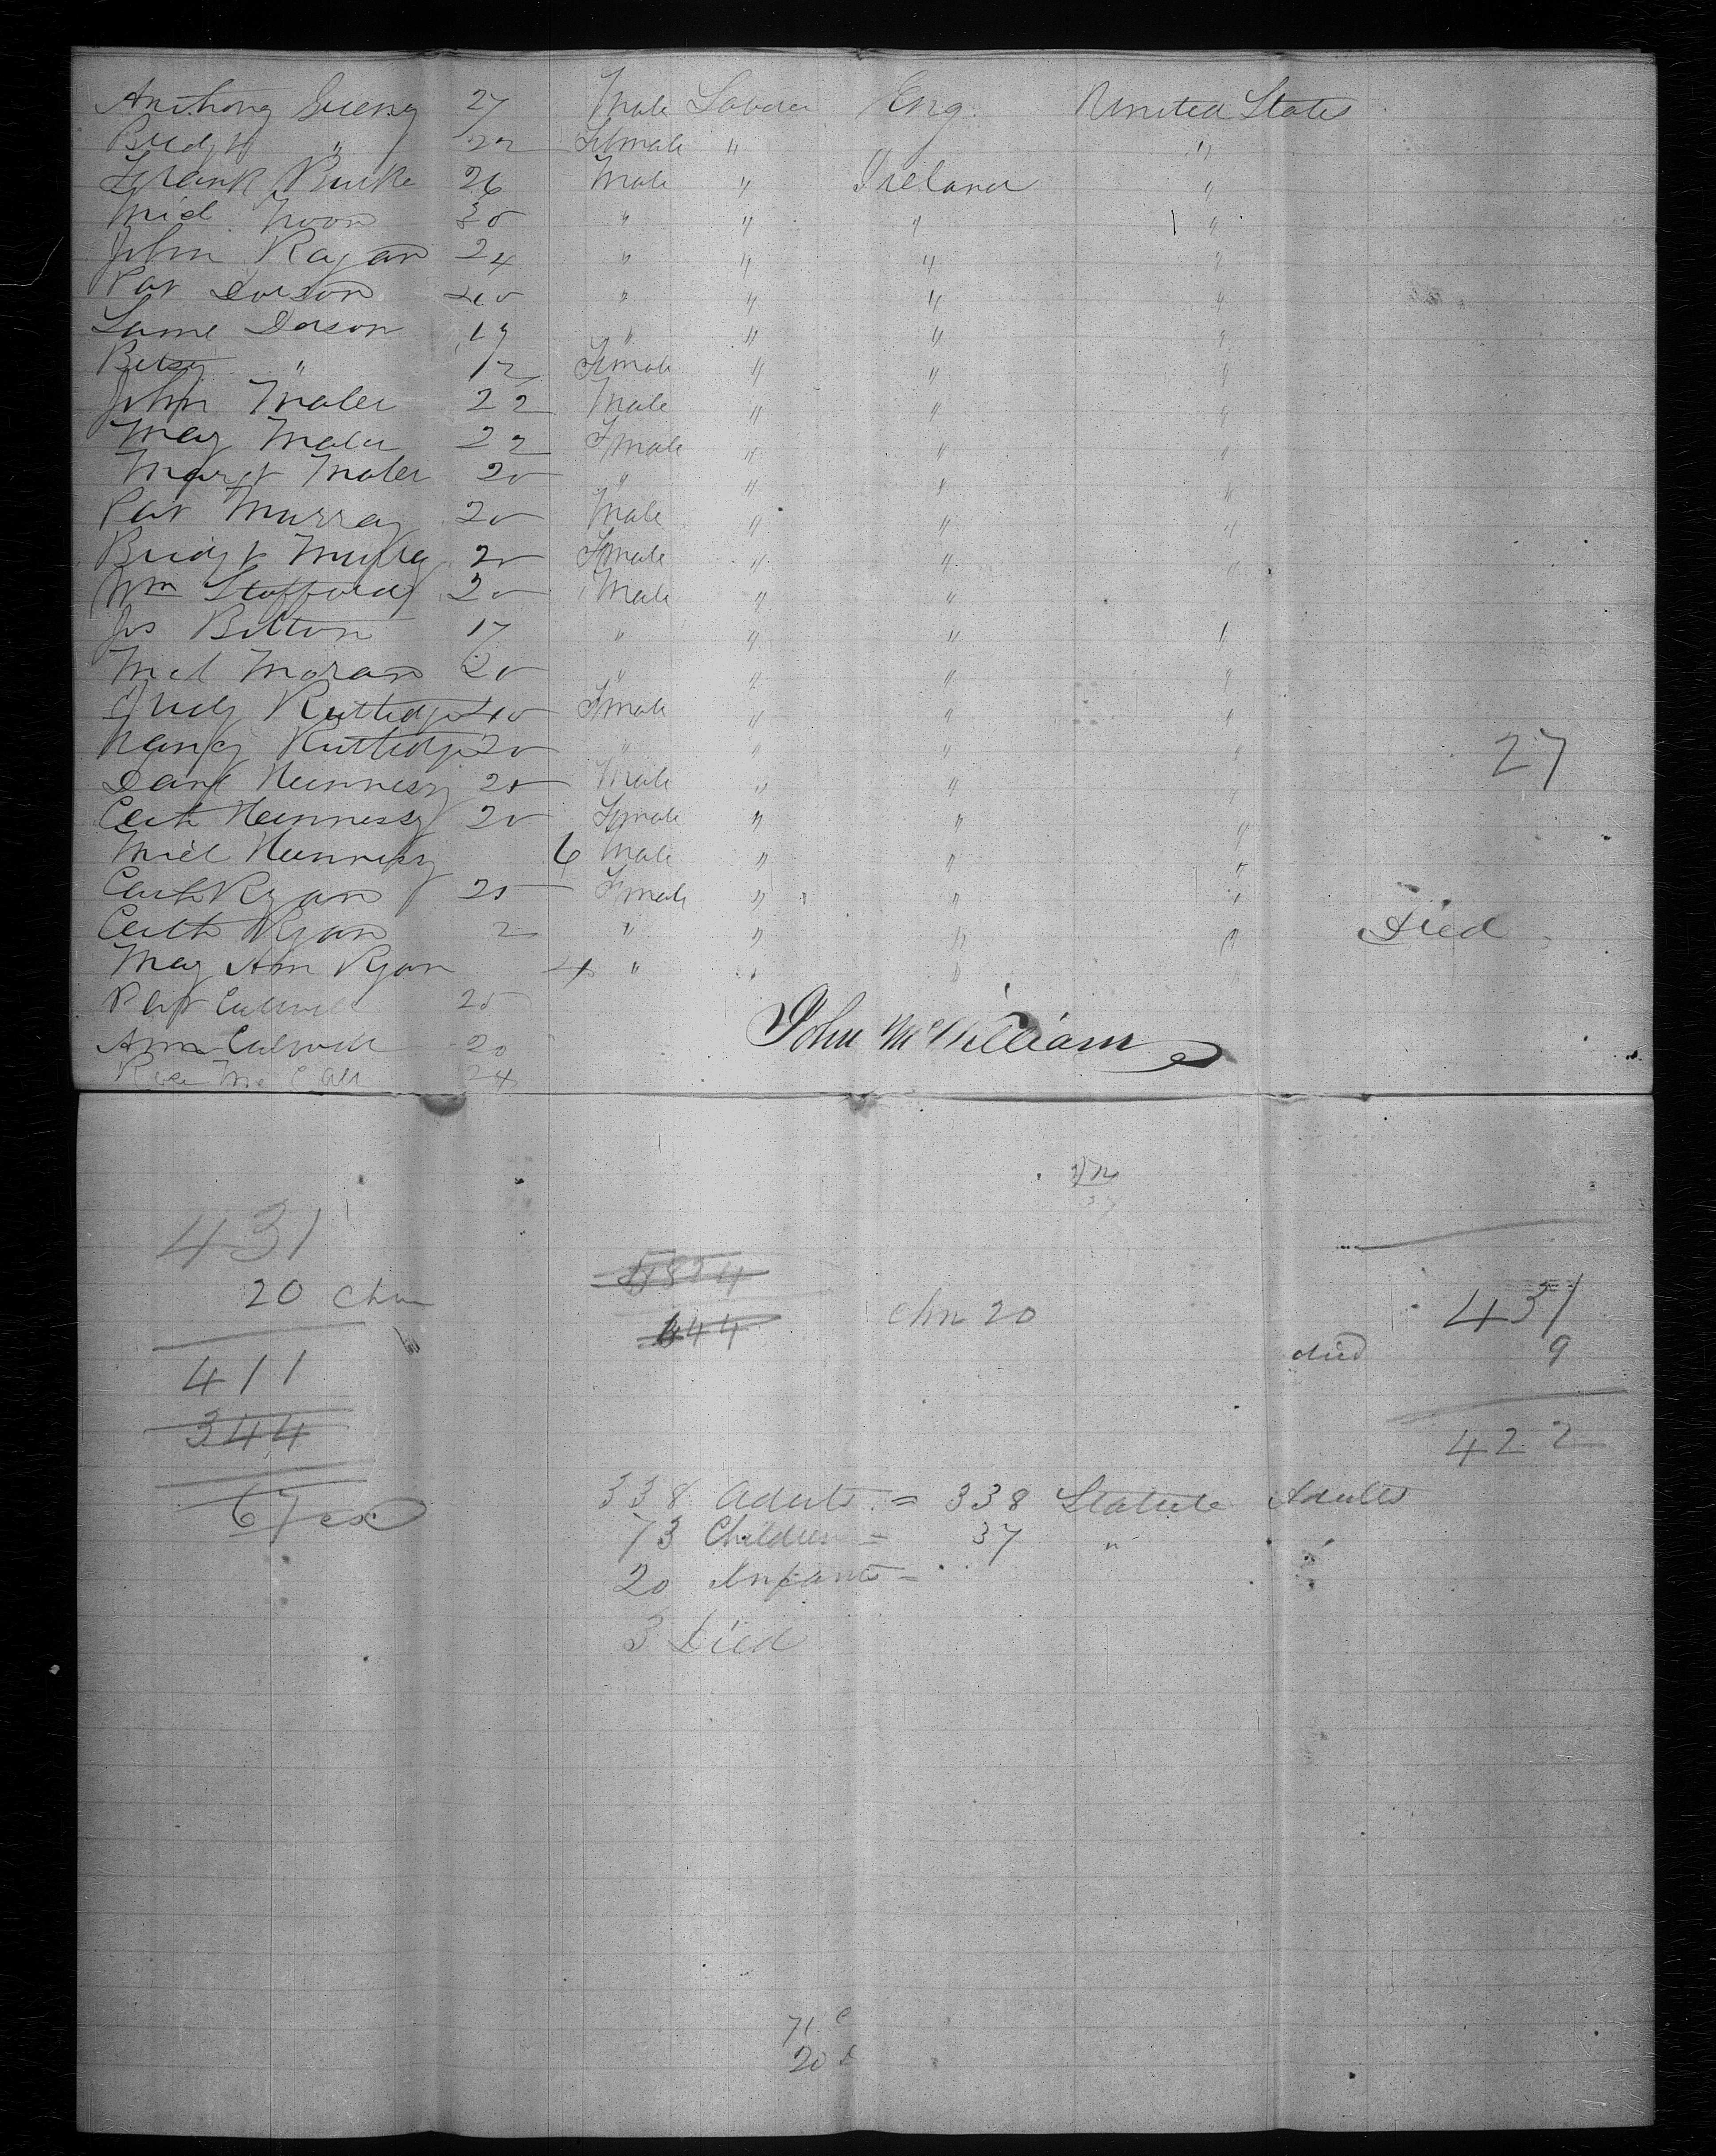 Anthony 27 Male Labour Eng. United States
Bridgt " 22 Female " "
Frank Burke 26 Male " Ireland "
Micl Noon 30 " " " "
John Ragan 24 " " " "
Pat Dorson 40 " " " "
Dorson 19 " " " "
Betsy " 12 Female " " "
John Maler 22 Male " " "
Mary Maler 22 Female " " "
Margt Maler 20 " " " "
Pat Murray 20 Male " " "
Bridgt 20 Female " " "
Wm Stafford 20 Male " " "
Jos Bolton 17 " " "
Micl Moran 20 " " " "
Judy Rutledge 40 Female " " "
Nancy Rutledge 20 " " " " 27
Danl Hennessy 20 Male " " "
Cath Hennessy 20 Female " " "
Micl Hennessy 6 Male " " "
Cath Ryan 25 Female " " "
Cath Ryan 2 " " " " Died
Mary Ann Ryan 4 " " " "
Pat 25
Ann 20
Rose Mc Call 24
John McWilliam
431
20 chn
411
344
67
5824
644
chn 20
431
died 9
422
338 Adults = 338 Statute Adults
73 Children = 37 " "
20 Infants =
3 Died
71 C
20